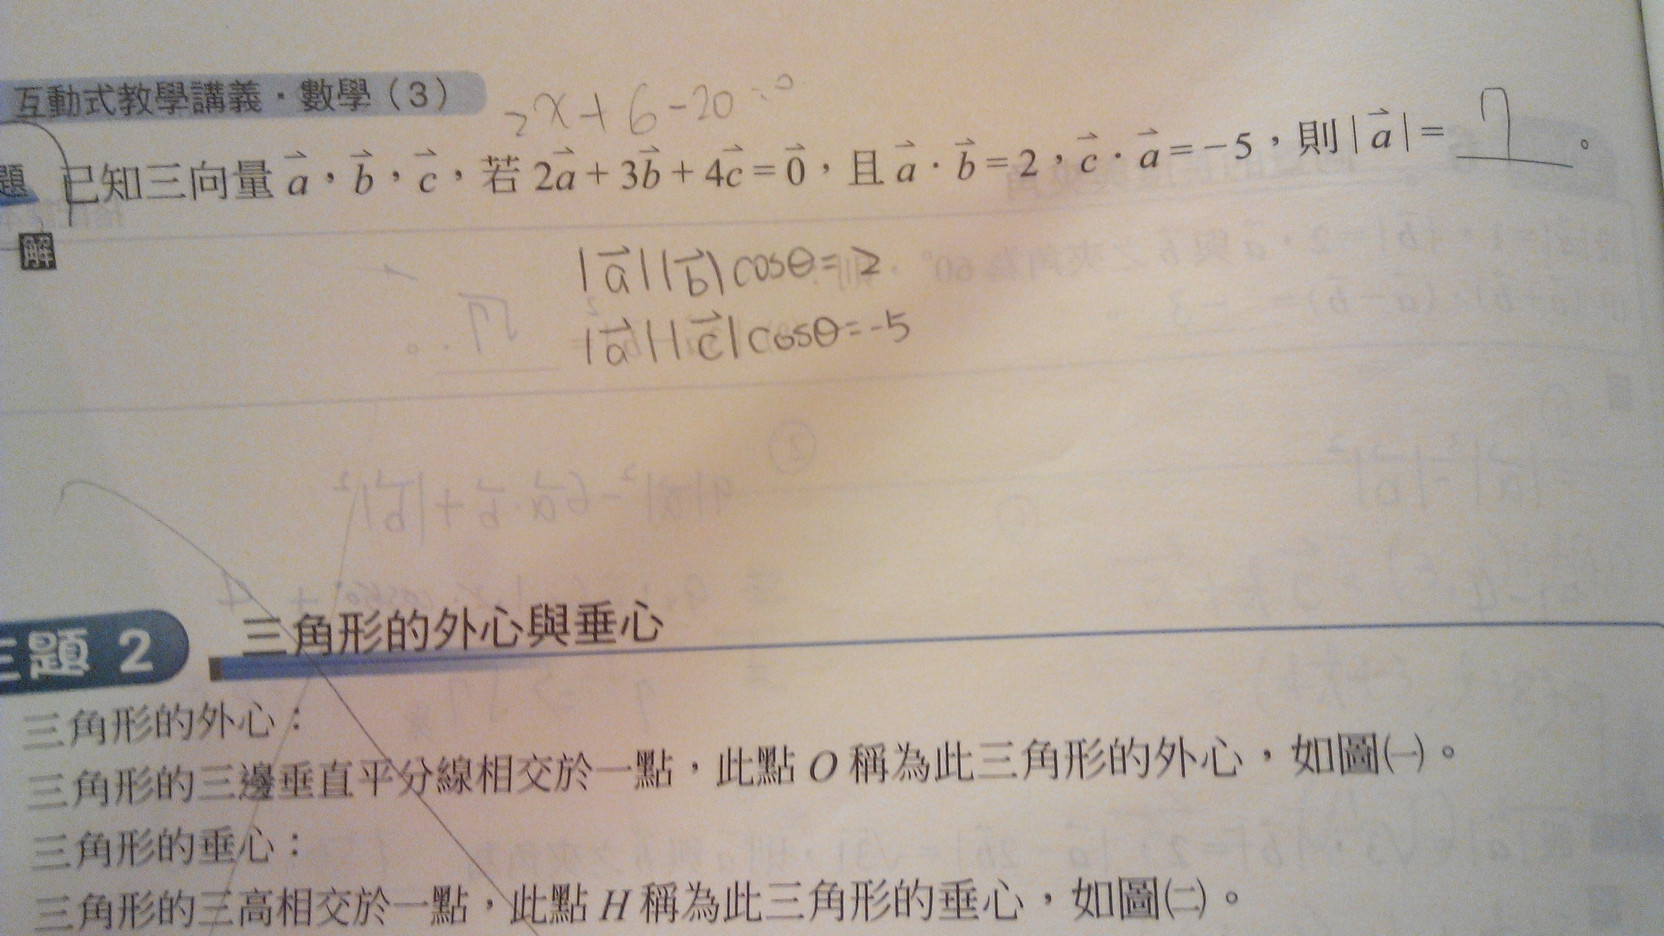 互動式教學講義·數學(3)
2x+6-20=0
題 已知三向量 $\vec{a}$，$\vec{b}$，$\vec{c}$，若 $2\vec{a}+3\vec{b}+4\vec{c}=\vec{0}$，且 $\vec{a}\cdot\vec{b}=2$，$\vec{c}\cdot\vec{a}=-5$，則 $|\vec{a}|=$ 7 。
解
$|\vec{a}||\vec{b}|\cos\theta=2$
$|\vec{a}||\vec{c}|\cos\theta=-5$
題 2 三角形的外心與垂心
三角形的外心：
三角形的三邊垂直平分線相交於一點，此點 O 稱為此三角形的外心，如圖㈠。
三角形的垂心：
三角形的三高相交於一點，此點 H 稱為此三角形的垂心，如圖㈡。